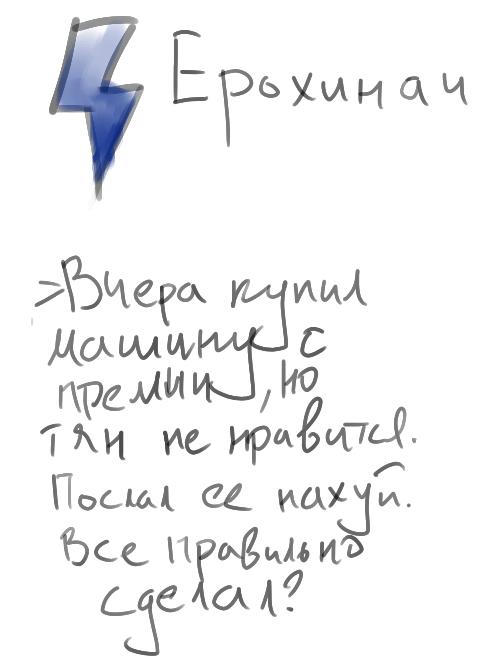 Ерохинач
>Вчера купил
машину с
премии, но
тян не нравится.
Послал ее нахуй.
Все правильно
сделал?